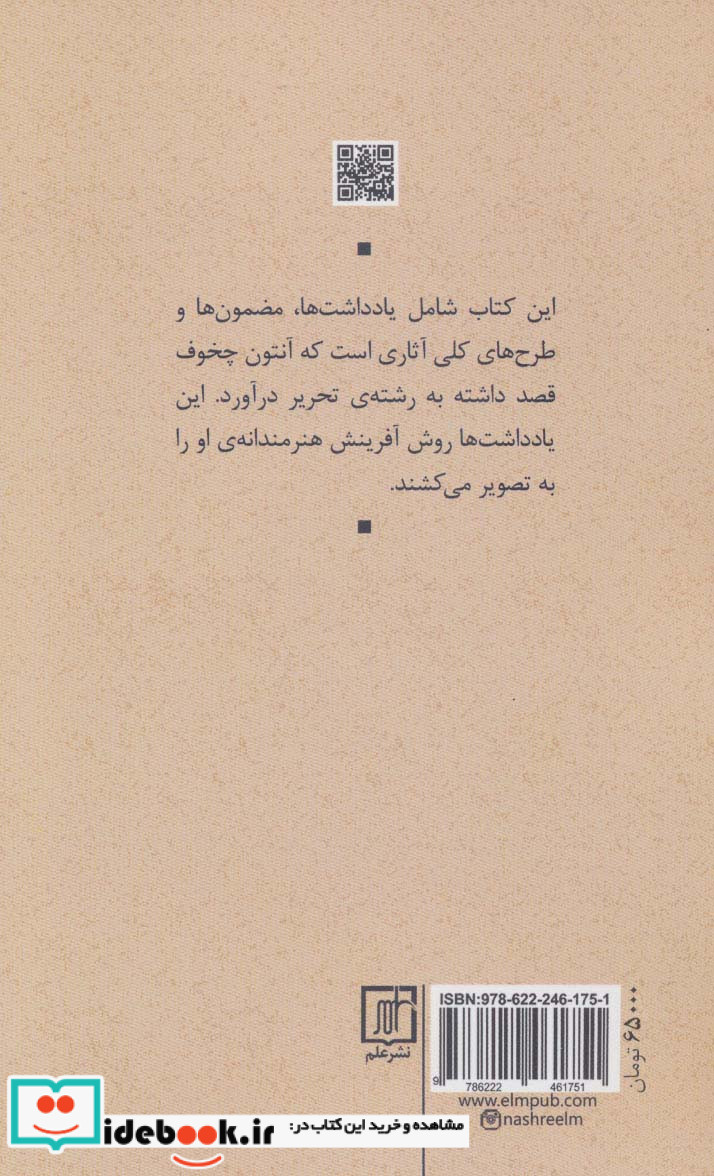 این کتاب شامل یادداشت‌ها، مضمون‌ها و
طرح‌های کلی آثاری است که آنتون چخوف
قصد داشته به رشته‌ی تحریر درآورد. این
یادداشت‌ها روش آفرینش هنرمندانه‌ی او را
به تصویر می‌کشند.
ISBN:978-622-246-175-1
9 786222 461751
www.elmpub.com
nashreelm
۶۵۰۰۰ تومان
نشر علم
مشاهده و خرید این کتاب در:
idebook.ir